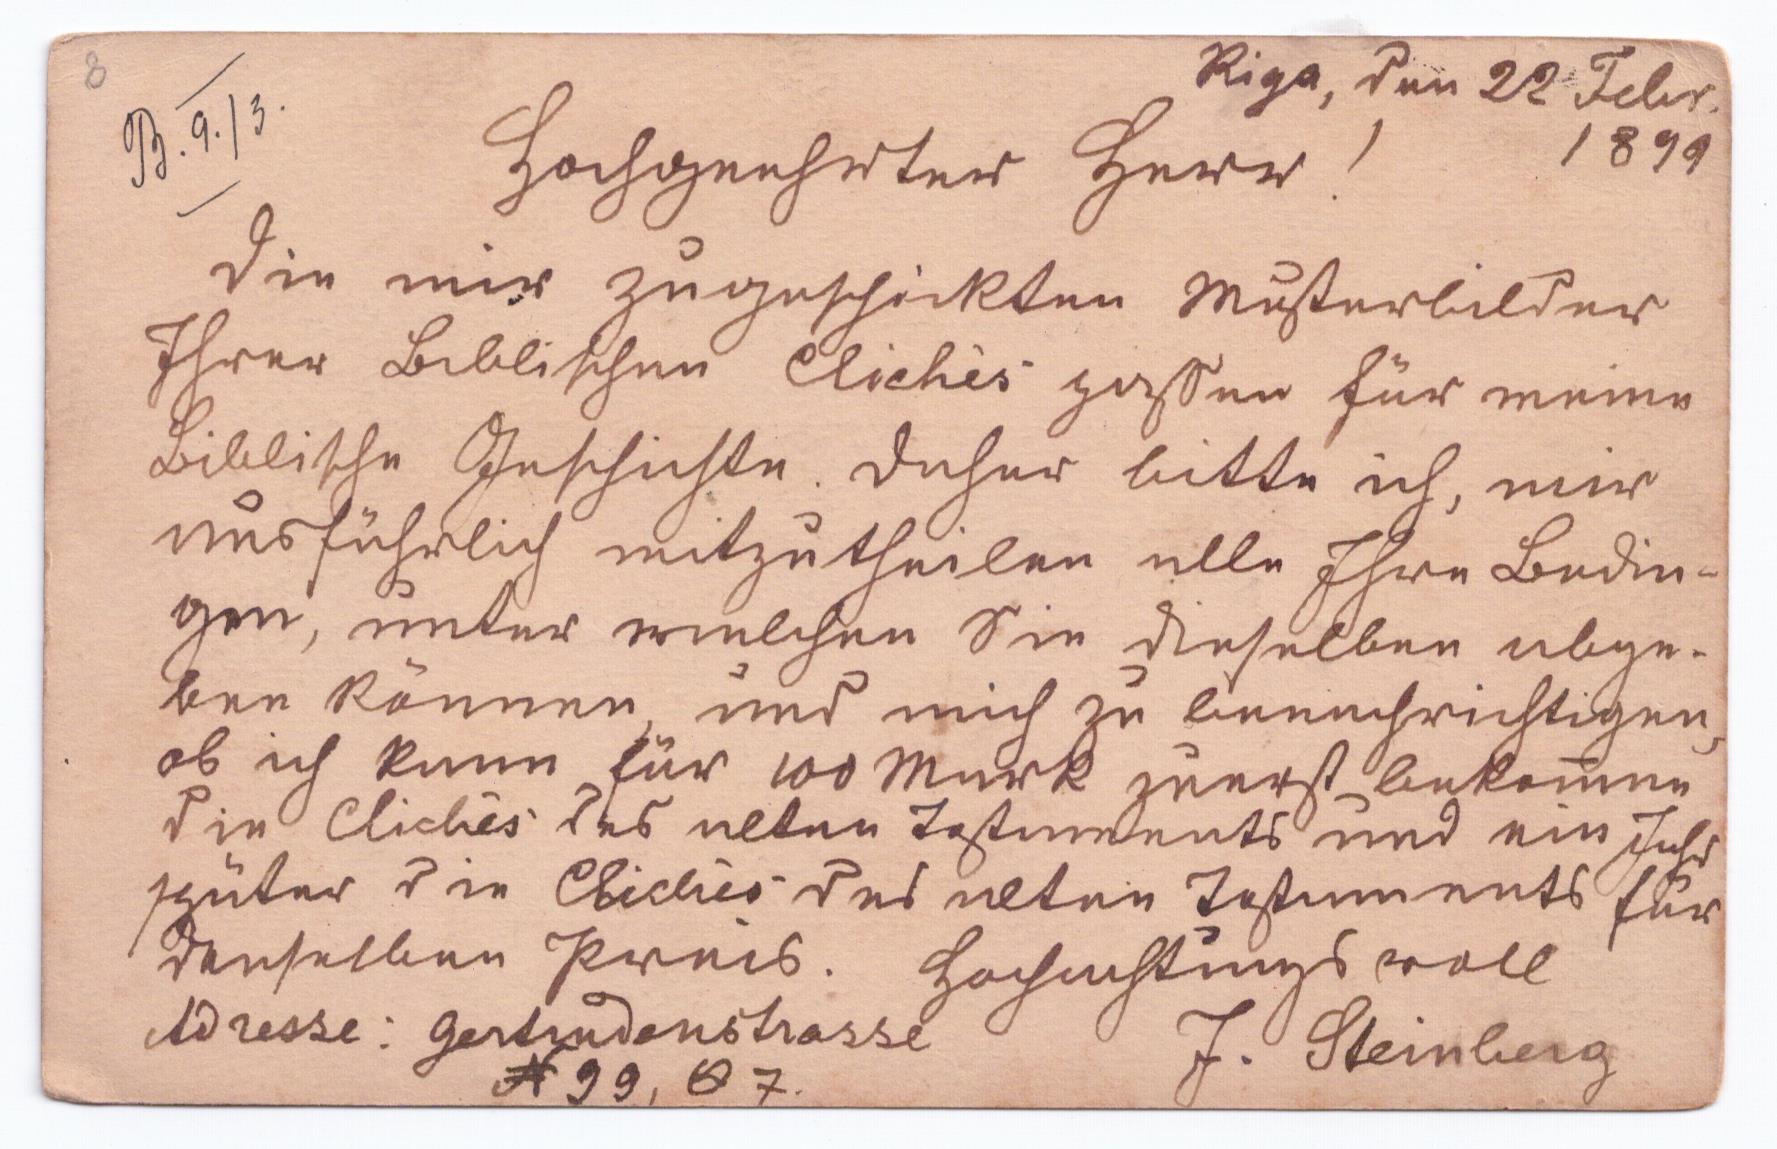 8
B. 9./3.
Riga, den 22 Febr.
1899
Hochgeehrter Herr!
Die mir zugeschickten Musterbilder
Ihrer Biblischen Clichés passen für meine
Biblische Geschichte. Daher bitte ich, mir
ausführlich mitzutheilen alle Ihre Bedin-
gen, unter welchen Sie dieselben abge-
ben können, und mich zu benachrichtigen,
ob ich kann für 100 Mark zuerst bekommen
die Clichés des alten Testaments und ein Jahr
später die Clichés des alten Testaments für
denselben Preis. Hochachtungsvoll
Adresse: Gertrudenstrasse J. Steinberg
№ 99, 7.